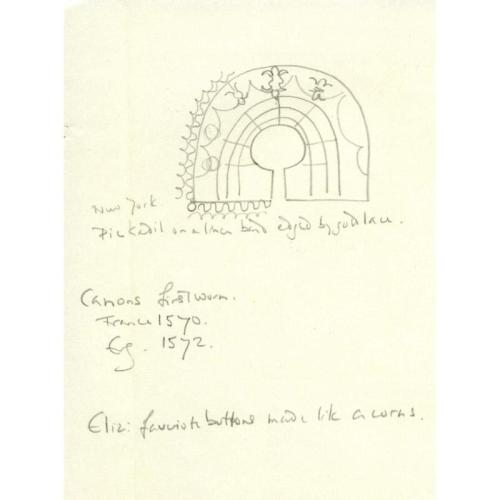 New York.
Pickadil on a linen band edged by gold lace.
Canons first worn.
France 1570.
Eng. 1572.
Eliz: favourite buttons made like acorns.